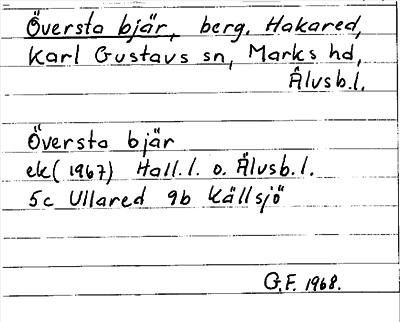 Översta bjär, berg. Hakared,
Karl Gustavs sn, Marks hd,
Älvsb.l.
Översta bjär
ek (1967) Hall.l. o. Älvsb.l.
5c Ullared 9b Källsjö
G.F. 1968.